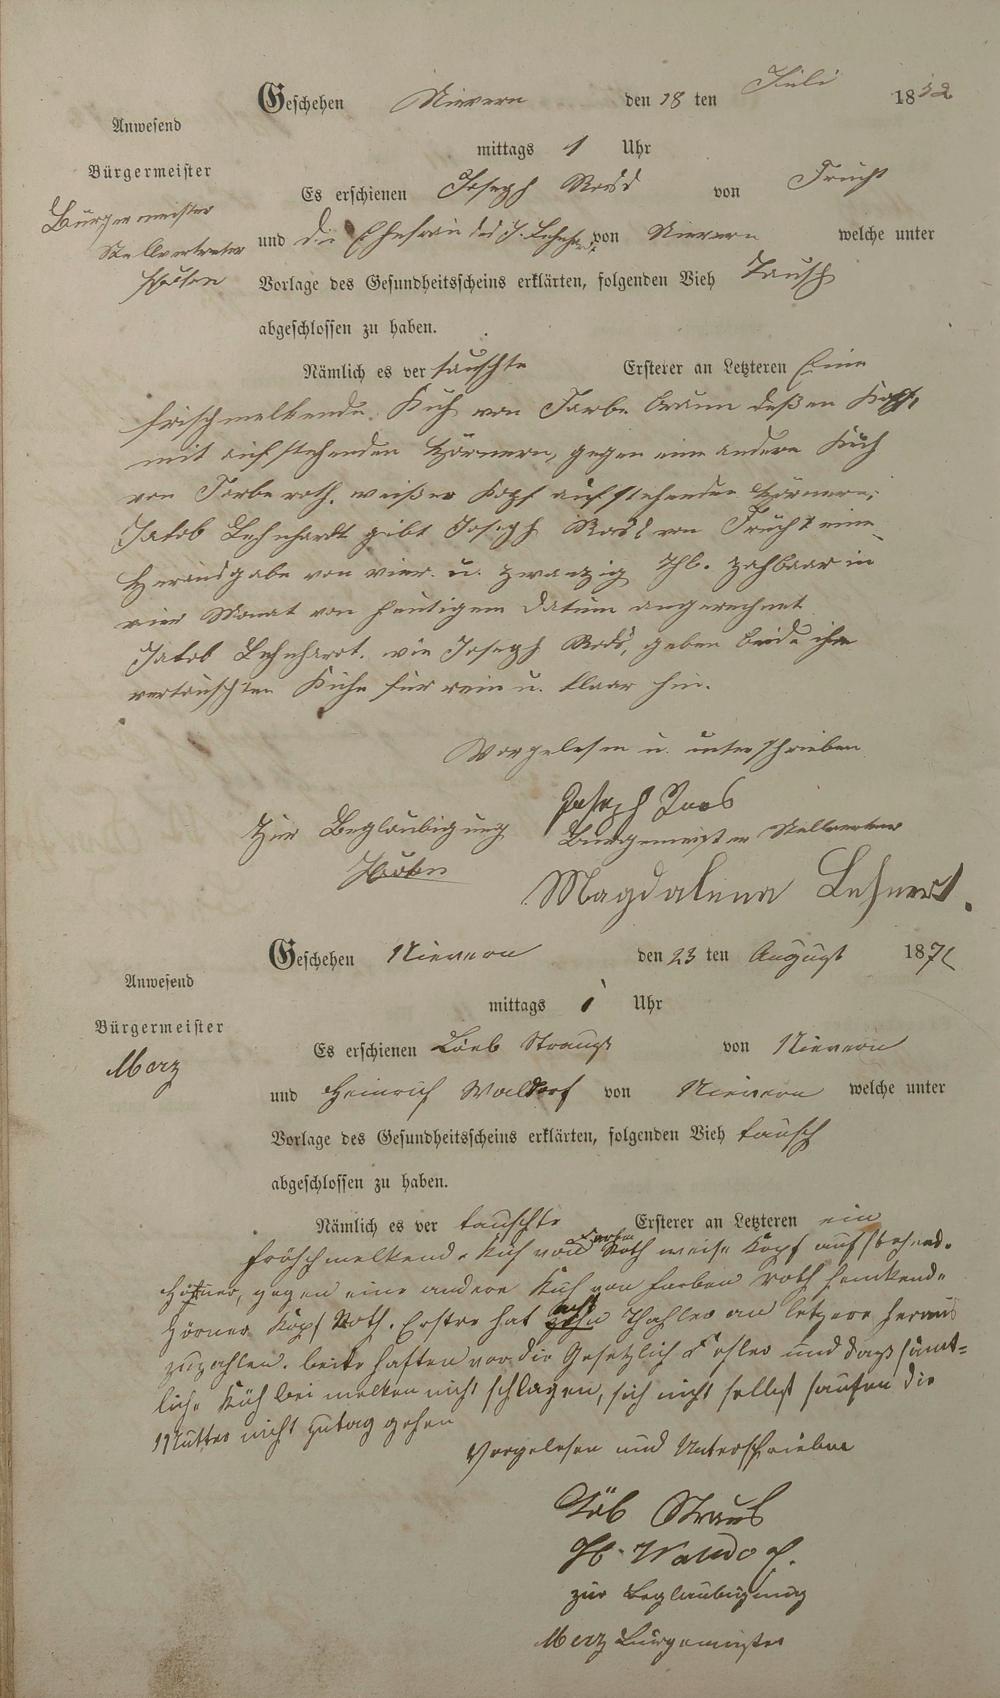 Geschehen Nievern den 18 ten Juli 18
Anwesend
mittags 1 Uhr
Bürgermeister
Es erschienen Joseph von Frücht
Bürgermeister
Stellvertreter
und die Ehefrau des J. von Nievern welche unter
Vorlage des Gesundheitsscheins erklärten, folgenden Vieh Tausch
abgeschlossen zu haben.
Nämlich es ver tauschte Ersterer an Letzteren Eine
frischmelkende Kuh von Farbe braun deßen Kopf,
mit aufstehenden Hörnern, gegen eine andere Kuh
von Farbe roth, weißer Kopf aufstehenden Hörnern;
Jakob Lehnhardt gibt Joseph von Frücht eine
Herausgabe von vier u. zwanzig Thl. zahbaar in
vier Monat von heutigem Datum angerechnet
Jakob Lehnhardt. wie Joseph geben beide ihre
vertauschten Kühe für rein u. klaar hin.
Vorgelesen u. unterschrieben
Joseph
Zur Beglaubigung Bürgemeister Stellvertreter
Magdalena Lehnert.
Geschehen Nievern den 23 ten August 187
Anwesend
mittags 1 Uhr
Bürgermeister
Merz
Es erschienen Löeb Strauß von Nievern
und Heinrich Waldorf von Nievern welche unter
Vorlage des Gesundheitsscheins erklärten, folgenden Vieh tausch
abgeschlossen zu haben.
Nämlich es ver tauschte Ersterer an Letzteren ein
fröschmelkende Kuh von Farbe Roth weise Kopf aufstehend.
Hörner, gegen eine andere Kuh von farben roth henkende
Hörner Kopf Roth. Erstre hat acht Thahler an letzere heraus
zuzahlen. beite haften vor die Gesetzlich Fehler und daß sämt=
liche Küh bei melken nicht schlagen, sich nicht selbst saufen die
Mutter nicht zutag gehen
Vorgelesen und Unterschrieben
Löb Straus
H. Waldorf.
zur Beglaubigung
Merz Bürgemeister